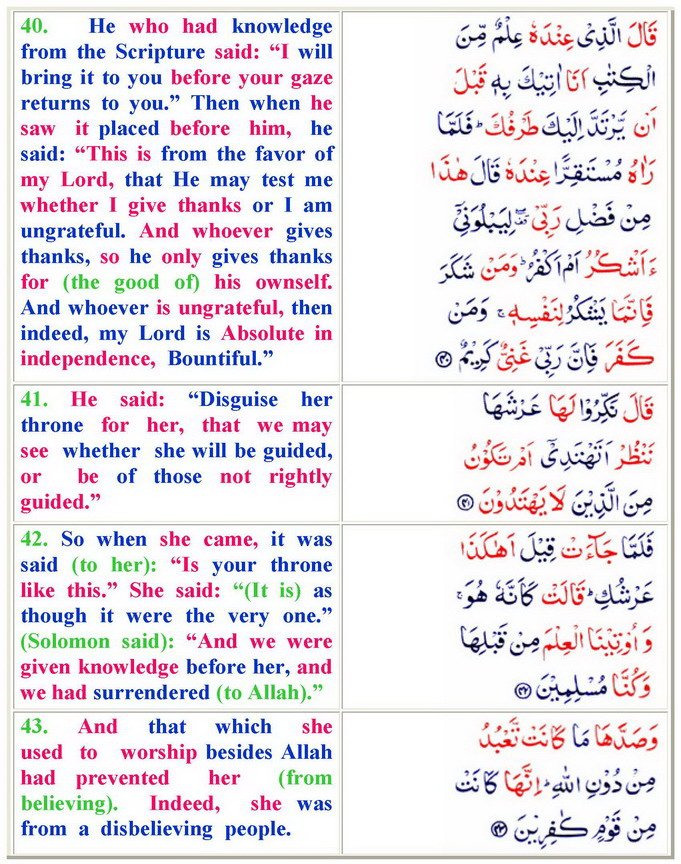 40. He who had knowledge
from the Scripture said: “I will
bring it to you before your gaze
returns to you.” Then when he
saw it placed before him, he
said: “This is from the favor of
my Lord, that He may test me
whether I give thanks or I am
ungrateful. And whoever gives
thanks, so he only gives thanks
for (the good of) his ownself.
And whoever is ungrateful, then
indeed, my Lord is Absolute in
independence, Bountiful.”
قَالَ الَّذِىْ عِنْدَهٗ عِلْمٌ مِّنَ
الْكِتٰبِ اَنَا اٰتِيْكَ بِهٖ قَبْلَ
اَنْ يَّرْتَدَّ اِلَيْكَ طَرْفُكَ ؕ فَلَمَّا
رَاٰهُ مُسْتَقِرًّا عِنْدَهٗ قَالَ هٰذَا
مِنْ فَضْلِ رَبِّىْ ۖ لِيَبْلُوَنِىْٓ
ءَاَشْكُرُ اَمْ اَكْفُرُ ؕ وَمَنْ شَكَرَ
فَاِنَّمَا يَشْكُرُ لِنَفْسِهٖ ۚ وَمَنْ
كَفَرَ فَاِنَّ رَبِّىْ غَنِىٌّ كَرِيْمٌ ﴿۴۰﴾
41. He said: “Disguise her
throne for her, that we may
see whether she will be guided,
or be of those not rightly
guided.”
قَالَ نَكِّرُوْا لَهَا عَرْشَهَا
نَنْظُرْ اَتَهْتَدِىْٓ اَمْ تَكُوْنُ
مِنَ الَّذِيْنَ لَا يَهْتَدُوْنَ ﴿۴۱﴾
42. So when she came, it was
said (to her): “Is your throne
like this.” She said: “(It is) as
though it were the very one.”
(Solomon said): “And we were
given knowledge before her, and
we had surrendered (to Allah).”
فَلَمَّا جَآءَتْ قِيْلَ اَهٰكَذَا
عَرْشُكِ ؕ قَالَتْ كَاَنَّهٗ هُوَ ۚ
وَ اُوْتِيْنَا الْعِلْمَ مِنْ قَبْلِهَا
وَكُنَّا مُسْلِمِيْنَ ﴿۴۲﴾
43. And that which she
used to worship besides Allah
had prevented her (from
believing). Indeed, she was
from a disbelieving people.
وَصَدَّهَا مَا كَانَتْ تَّعْبُدُ
مِنْ دُوْنِ اللّٰهِ ؕ اِنَّهَا كَانَتْ
مِنْ قَوْمٍ كٰفِرِيْنَ ﴿۴۳﴾